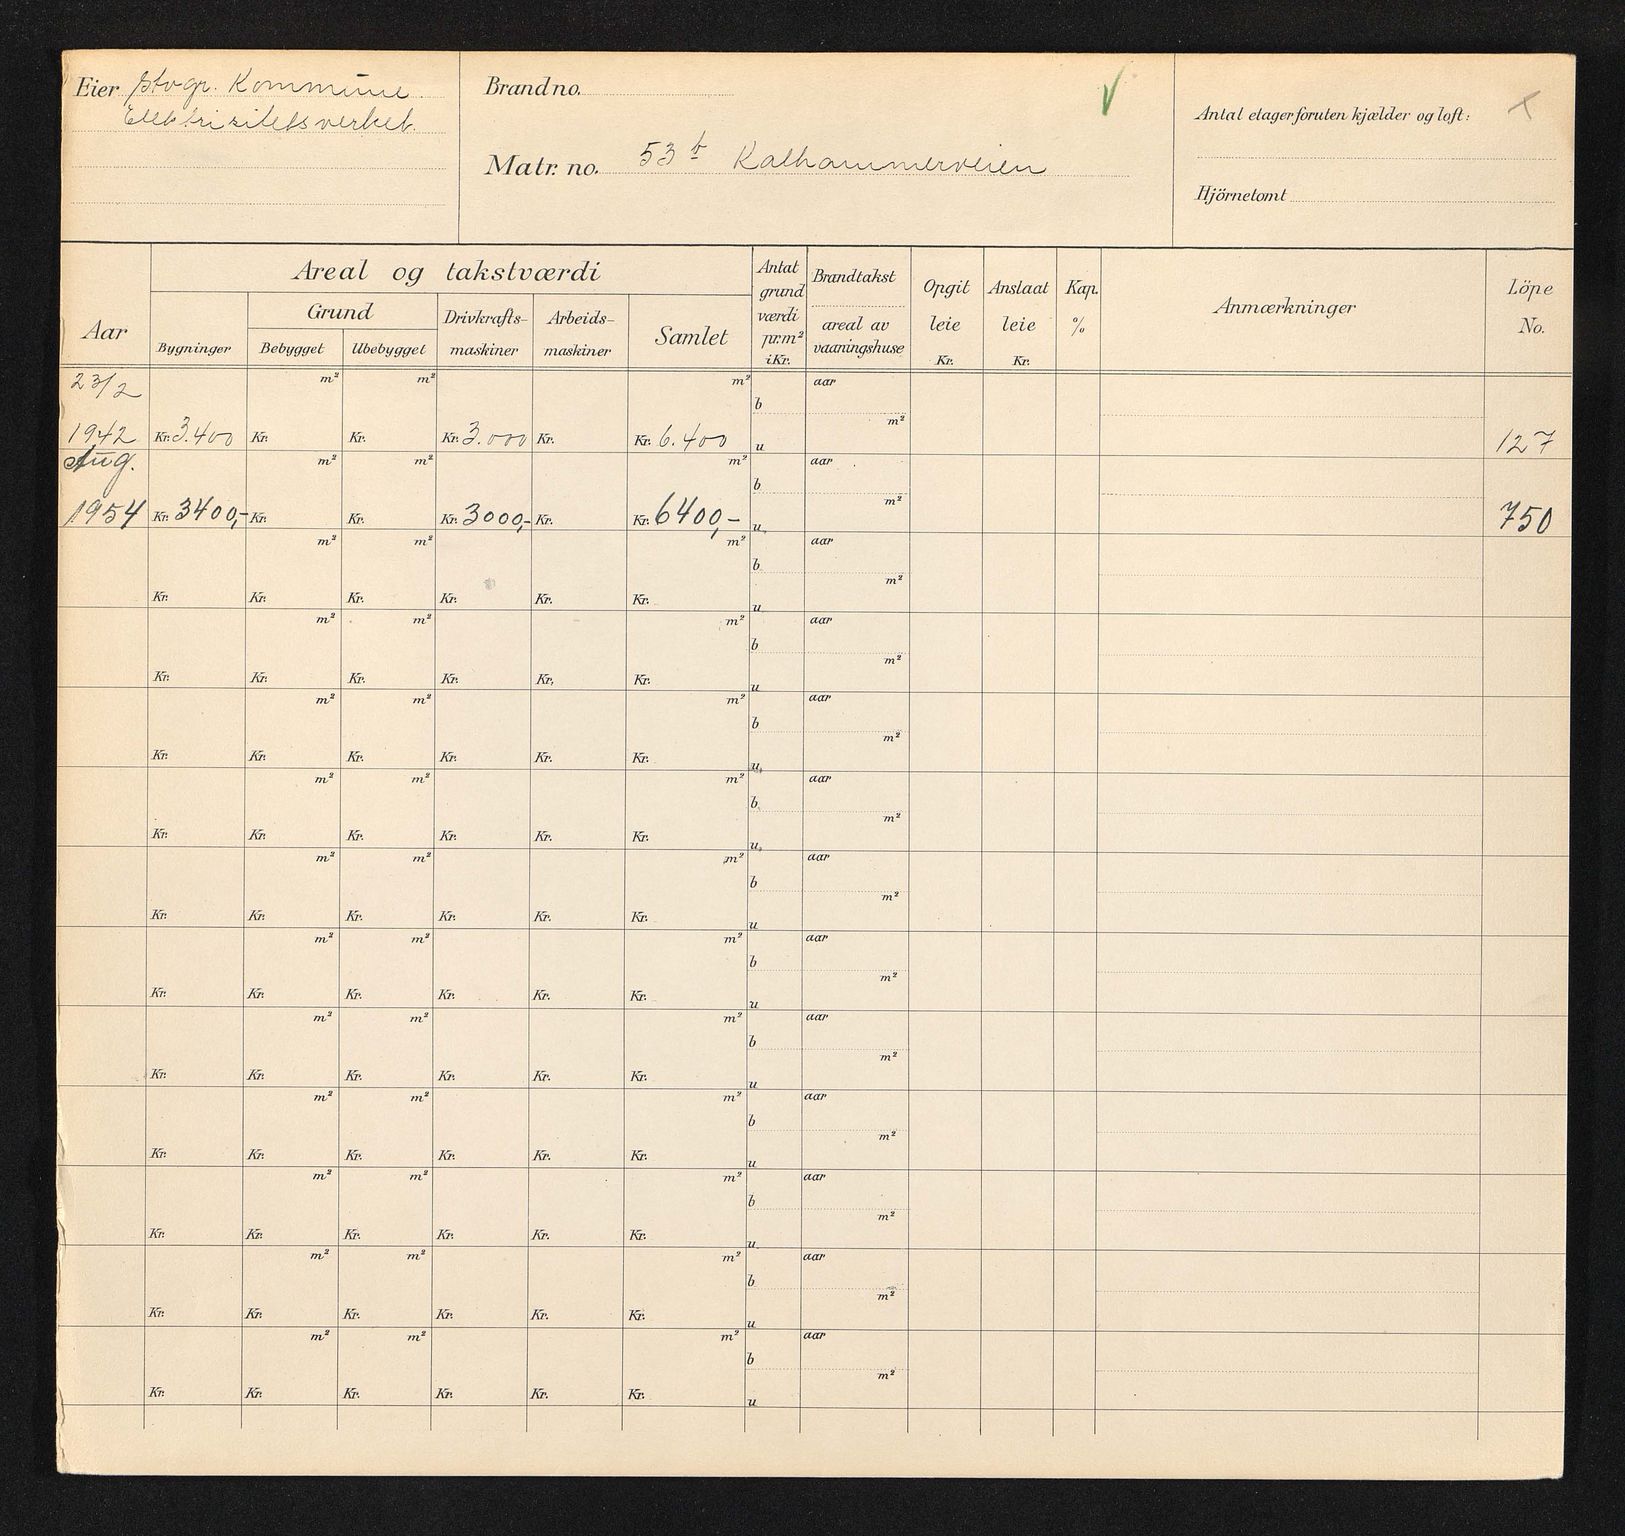 Eier Stvgr. Kommune
Elektrisitetsverket.
Brand no.
Matr. no. 53 b Kalhammerveien
Antal etager foruten kjælder og loft:
Hjörnetomt
Aar
Areal og takstværdi
Bygninger
Grund
Bebygget Ubebygget
Drivkrafts-
maskiner
Arbeids-
maskiner
Samlet
Antat
grund
værdi
pr. m²
i Kr.
Brandtakst
areal av
vaaningshuse
Opgit
leie
Kr.
Anslaat
leie
Kr.
Kap.
%
Anmærkninger
Löpe
No.
23/2 m² m² m² aar
b m²
1942 Kr. 3.400 Kr. Kr. Kr. 3.000 Kr. Kr. 6.400 u 127
Aug. m² m² m² aar
b m²
1954 Kr. 3400,- Kr. Kr. Kr. 3000,- Kr. Kr. 6400,- u 750
m² m² m² aar
b m²
Kr. Kr. Kr. Kr. Kr. Kr. u
m² m² m² aar
b m²
Kr. Kr. Kr. Kr. Kr. Kr. u
m² m² m² aar
b m²
Kr. Kr. Kr. Kr. Kr. Kr. u
m² m² m² aar
b m²
Kr. Kr. Kr. Kr. Kr. Kr. u
m² m² m² aar
b m²
Kr. Kr. Kr. Kr. Kr. Kr. u
m² m² m² aar
b m²
Kr. Kr. Kr. Kr. Kr. Kr. u
m² m² m² aar
b m²
Kr. Kr. Kr. Kr. Kr. Kr. u
m² m² m² aar
b m²
Kr. Kr. Kr. Kr. Kr. Kr. u
m² m² m² aar
b m²
Kr. Kr. Kr. Kr. Kr. Kr. u
m² m² m² aar
b m²
Kr. Kr. Kr. Kr. Kr. Kr. u
m² m² m² aar
b m²
Kr. Kr. Kr. Kr. Kr. Kr. u